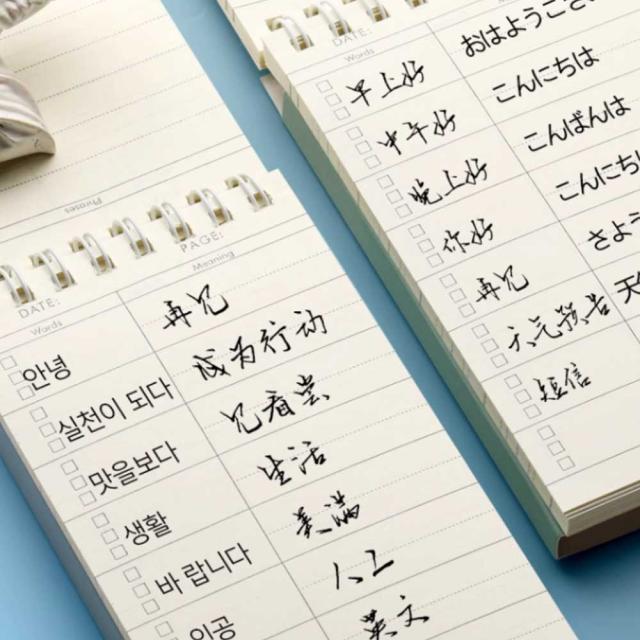 Phrases
PAGE:
DATE:
Words Meaning
안녕 再见
실천이 되다 成为行动
맛을보다
생활 生活
바 랍니다 美满
인공 人工
英文
DATE:
Words
早上好 おはようござ
中午好 こんにちは
晚上好 こんばんは
你好 こんにち
再见 さよ
预告 天
短信